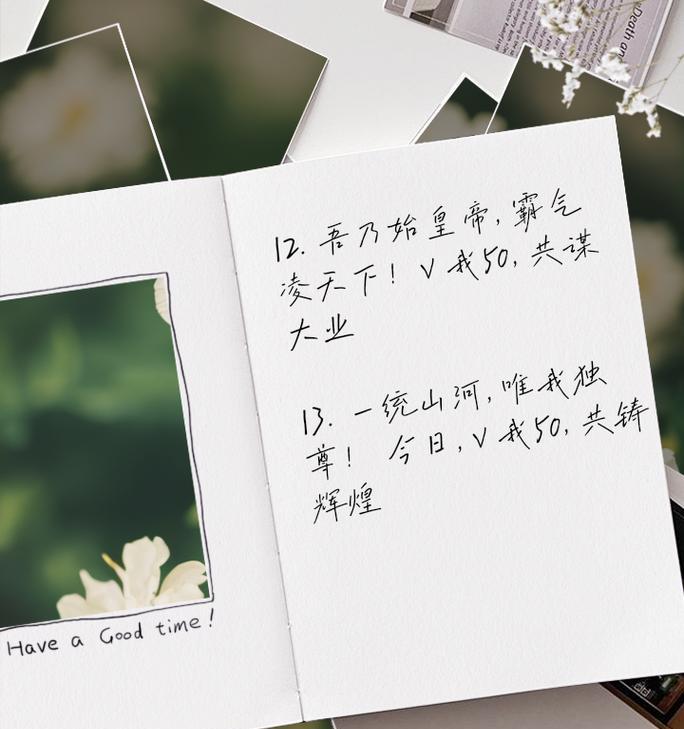 12. 吾乃始皇帝，霸气
凌天下！V我50，共谋
大业
13. 一统山河，唯我独
尊！今日，V我50，共铸
辉煌
Have a Good time!
Death an